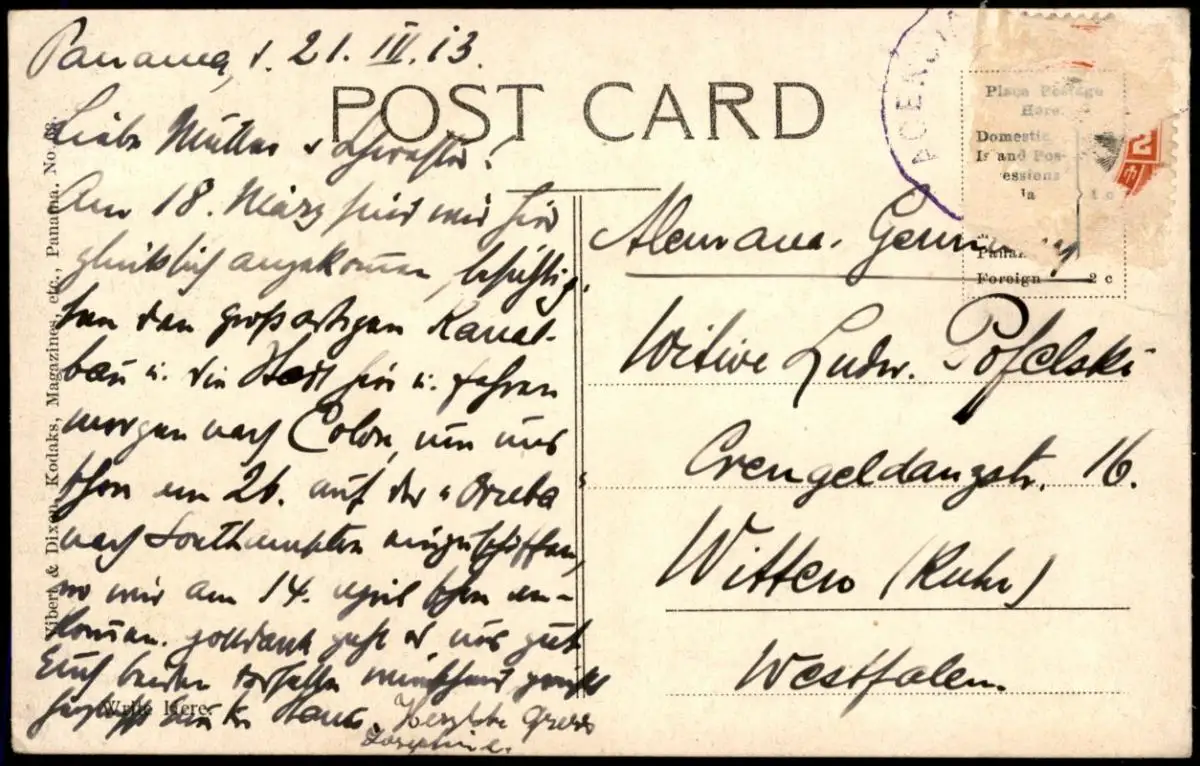 Panama, d. 21. III. 13.
POST CARD
Liebe Mutter u Schwester!
Am 18. März sind wir hier
glücklich angekommen, besichtig-
ten den großartigen Kanal-
bau u. die Stadt hier u. fahren
morgen nach Colon, um uns
schon am 26. auf der "Oruba"
nach Southampton einzuschiffen,
wo wir am 14. April schon an-
kommen. Gottdank geht es uns gut
Euch beiden dasselbe wünschend grüßt
herzlichst Hans. Herzliche Grüße
Josephine.
Write Here.
Vibert & Dixon, Kodaks, Magazines, etc., Panama. No.
AGENCIA
Place Postage
Here.
Domestic
Is and Pos-
essions
1 c
Foreign 2 c
2
Alemana. Germany
Witwe Ludw. Pofelski
Crengeldanzstr. 16.
Witten (Ruhr)
Westfalen.